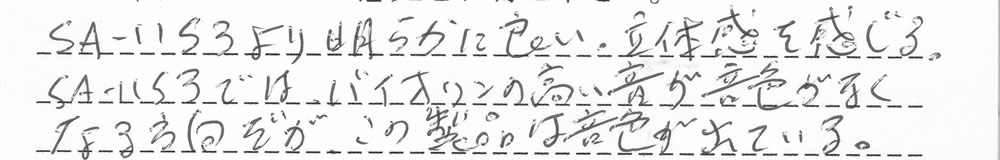 SA-11S3より明らかに良い。立体感を感じる。
SA-11S3では、バイオリンの高い音が音色がなく
なる方向だが、この製品は音色が出ている。